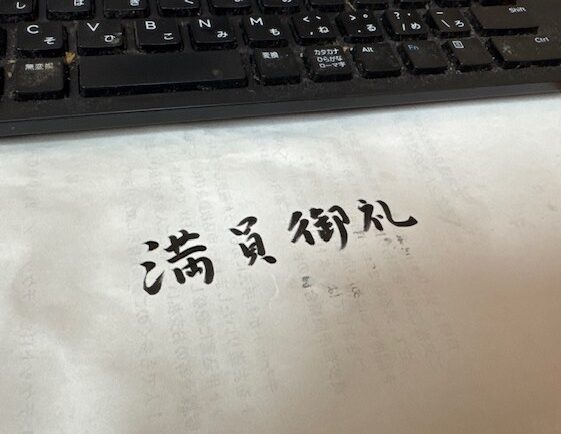 C そ V ひ B こ N み M も < 、 ね > 。 る ? ・ / め _ \ ろ Shift
無変換 変換 カタカナ ひらがな ローマ字 Alt Fn Ctrl
満員御礼